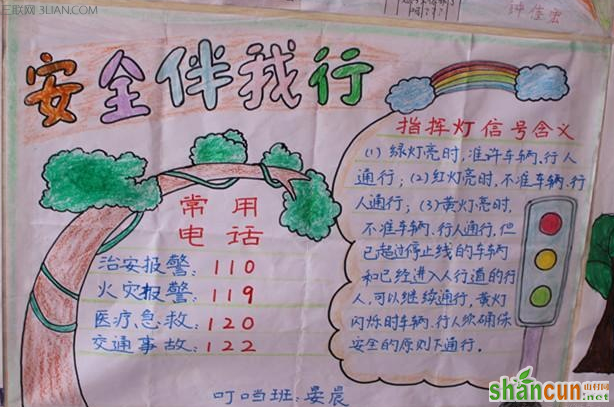 三联网 3LIAN.COM
钟佳宏
安全伴我行
常用
电话
治安报警：110
火灾报警：119
医疗急救：120
交通事故：122
指挥灯信号含义
(1) 绿灯亮时，准许车辆、行人
通行；(2) 红灯亮时，不准车辆、行
人通行；(3) 黄灯亮时，
不准车辆、行人通行，但
已超过停止线的车辆
和已经进入人行道的行
人，可以继续通行，黄灯
闪烁时车辆、行人须确保
安全的原则下通行。
叮当班：晏晨
shancun
山村网
.net